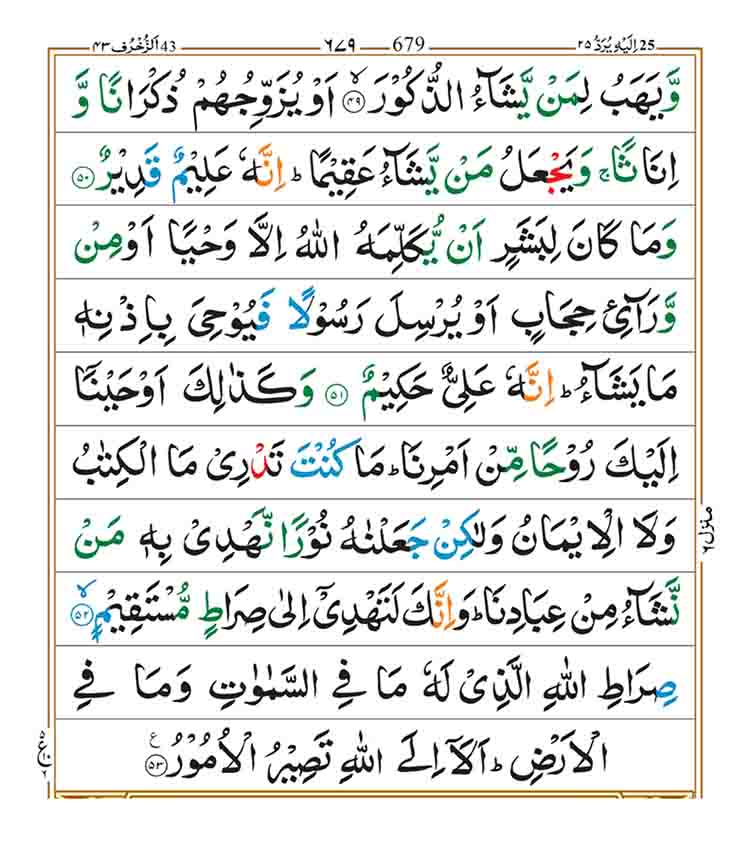 اِلَيْهِ يُرَدُّ ٢٥ 25 679 ٦٧٩ 43 اَلزُّخْرُف ٤٣
وَّيَهَبُ لِمَنْ يَّشَآءُ الذُّكُوْرَ ۙ﴿۴۹﴾ اَوْ يُزَوِّجُهُمْ ذُكْرَانًا وَّ
اِنَاثًا ۚ وَيَجْعَلُ مَنْ يَّشَآءُ عَقِيْمًا ؕ اِنَّهٗ عَلِيْمٌ قَدِيْرٌ ﴿۵۰﴾
وَمَا كَانَ لِبَشَرٍ اَنْ يُّكَلِّمَهُ اللّٰهُ اِلَّا وَحْيًا اَوْ مِنْ
وَّرَآئِ حِجَابٍ اَوْ يُرْسِلَ رَسُوْلًا فَيُوْحِىَ بِاِذْنِهٖ
مَا يَشَآءُ ؕ اِنَّهٗ عَلِىٌّ حَكِيْمٌ ﴿۵۱﴾ وَكَذٰلِكَ اَوْحَيْنَاۤ
اِلَيْكَ رُوْحًا مِّنْ اَمْرِنَا ؕ مَا كُنْتَ تَدْرِىْ مَا الْكِتٰبُ
وَلَا الْاِيْمَانُ وَلٰكِنْ جَعَلْنٰهُ نُوْرًا نَّهْدِىْ بِهٖ مَنْ
نَّشَآءُ مِنْ عِبَادِنَا ؕ وَاِنَّكَ لَتَهْدِىْۤ اِلٰى صِرَاطٍ مُّسْتَقِيْمٍ ۙ﴿۵۲﴾
صِرَاطِ اللّٰهِ الَّذِىْ لَهٗ مَا فِى السَّمٰوٰتِ وَمَا فِى
الْاَرْضِ ؕ اَلَاۤ اِلَى اللّٰهِ تَصِيْرُ الْاُمُوْرُ ﴿۵۳﴾ ع
منزل ٦
ع